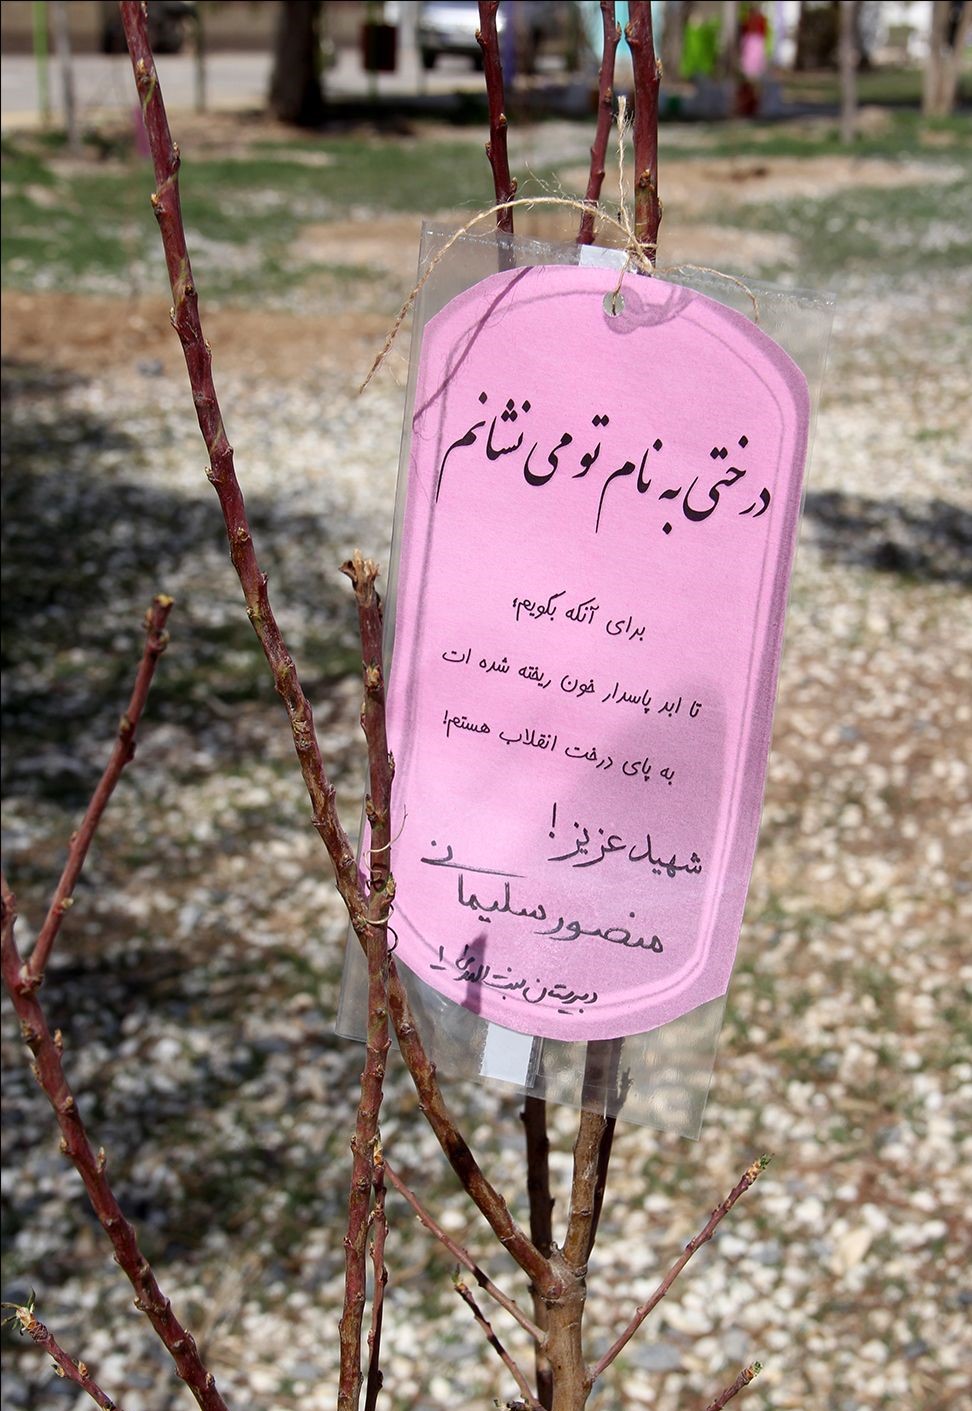 درختی به نام تو می نشانم
برای آنکه بگویم؛
تا ابد پاسدار خون ریخته شده ات
به پای درخت انقلاب هستم!
شهید عزیز!
منصور سلیمانی
دبیرستان بنت الهدی!